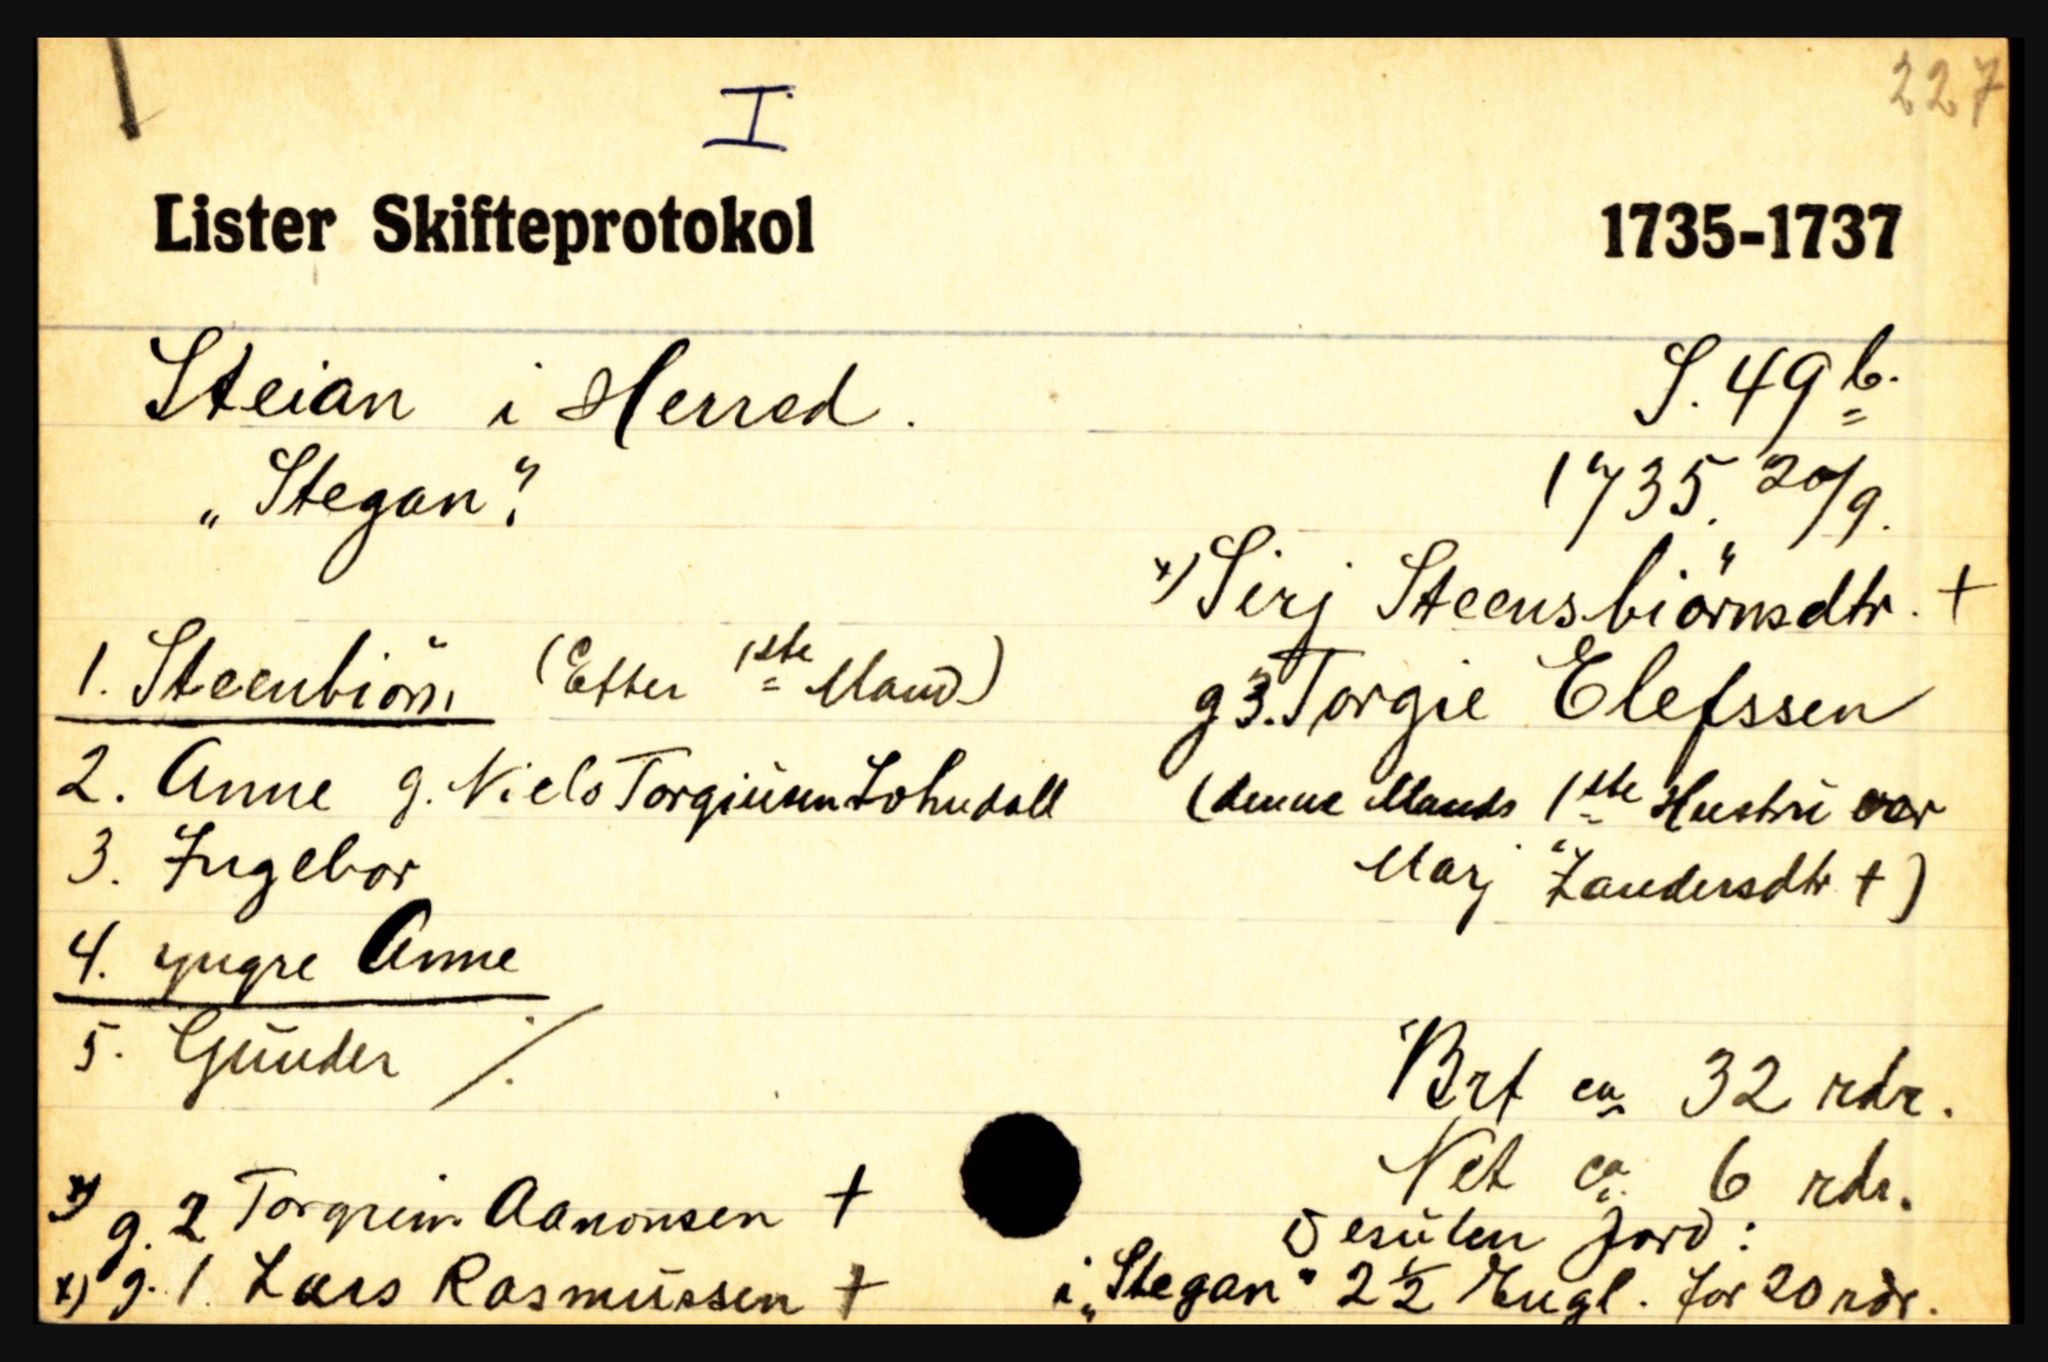 227
I
Lister Skifteprotokol 1735-1737
Steian i Herred. S. 49 b.
„Stegan"? 1735. 20/9.
x) Sirj Steensbiörnsdtr. +
1. Steenbiörn (Efter 1ste Mand) g 3. Torgie Elefssen
2. Anne g. Niels Torgiusen Lohndall (denne Mands 1ste Hustru var
3. Ingebor Marj Zandersdtr +)
4. yngre Anne
5. Gunder ./.
Brt ca 32 rdr.
Net ca. 6 rdr.
x) g. 2 Torgrim Aanonsen + Desuten jord:
x) g. 1. Lars Rasmussen + i „Stegan" 2 1/2 Engl. for 20 rdr.